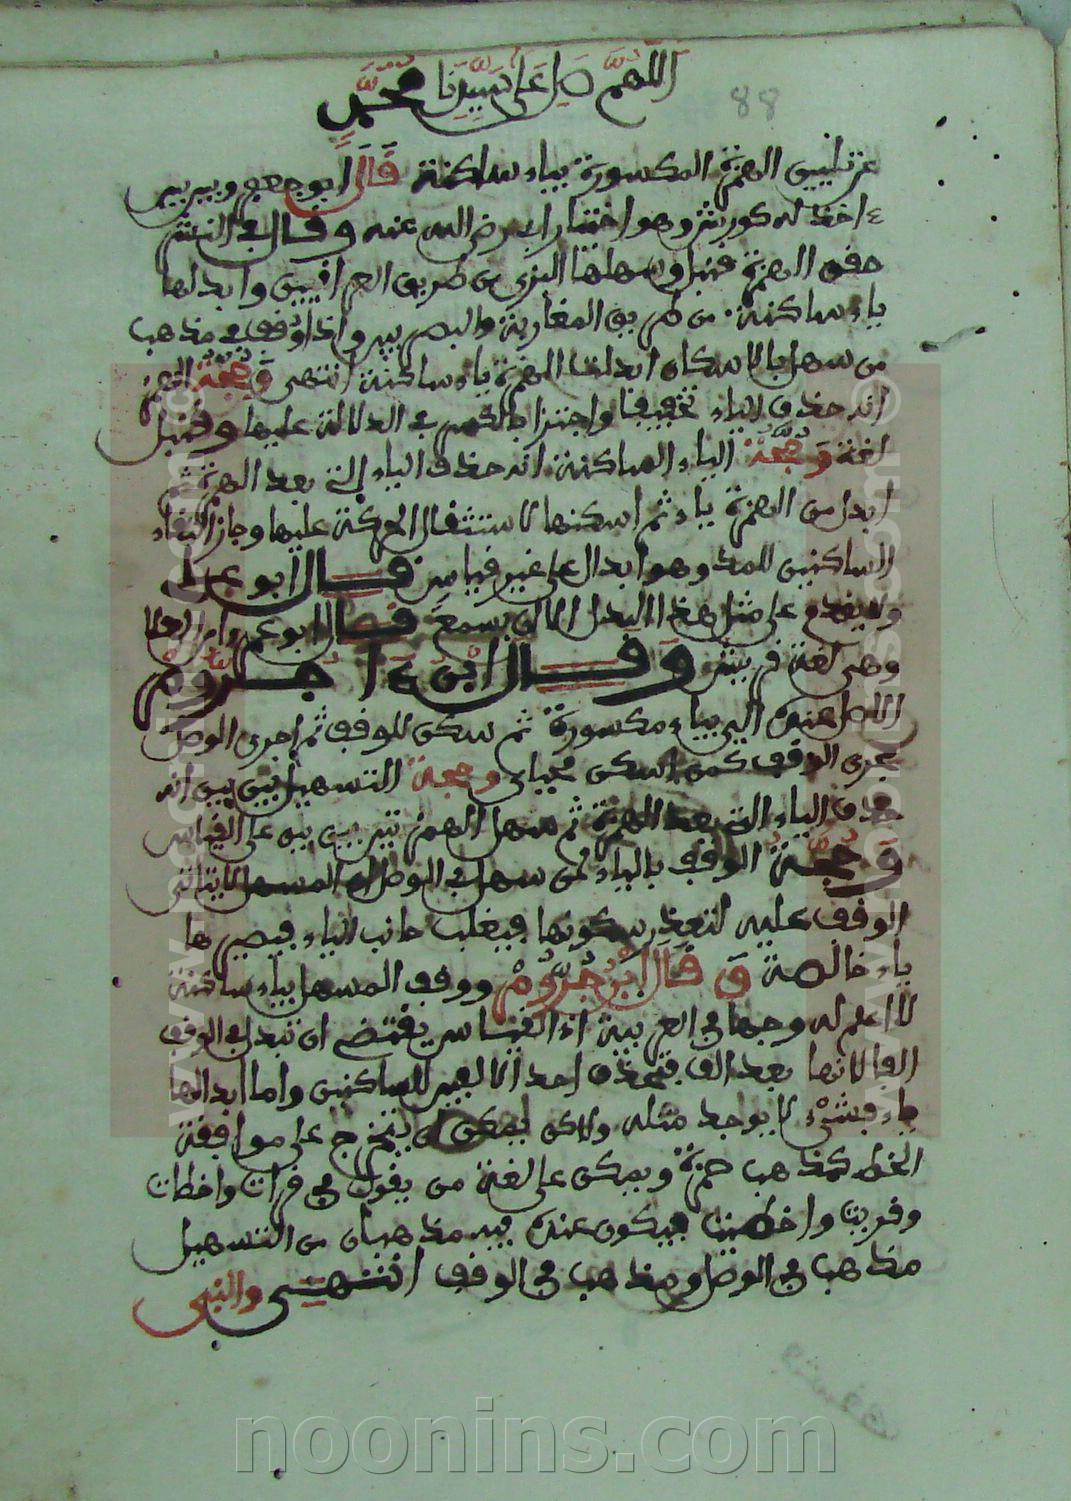 اللهم صل على سيدنا محمد
88
عن تليين الهمزة المكسورة بياء ساكنة قال ابو جعفر وبين بين
اخذ له كورش وهو اختيار ابي رضي الله عنه وقال في النشر
حقق الهمزة قنبل وسهلها البزي من طريق العراقيين وابدلها
ياء ساكنة من طريق المغاربة والبصريين واذا وقف في مذهب
من سهل بالاسكان ابدلت الهمزة ياء ساكنة انتهى وحجة الهمز
انه حذف الياء تخفيفا واجتزا بالكسر في الدلالة عليها وقيل
لغة وحجة الياء الساكنة انه حذف الياء التي بعد الهمزة ثم
ابدل من الهمزة ياء ثم اسكنها لاستثقال الحركة عليها وجاز التقاء
الساكنين للمد وهو ابدال على غير قياس قال ابو علي
ولا يقدم على مثل هذا البدل الا ان يسمع قال ابو عمرو ابن العلا
وهي لغة قريش وقال ابن ءاجروم
الاصل عنده الي بياء مكسورة ثم سكن للوقف ثم اجرى الوصل
مجرى الوقف كمن اسكن محياي وحجة التسهيل بين بين انه
حذف الياء التي بعد الهمزة ثم سهل الهمز بين بين على القياس
وحجة الوقف بالياء لمن سهل في الوصل ان المسهل لا يتاتى
الوقف عليه لتعذر سكونها فيغلب جانب الياء فيصيرها
ياء خالصة وقال ابن جروم ووقف المسهل بياء ساكنة
لا اعلم له وجها في العربية اذ القياس يقتضي ان تبدل في الوقف
الفا لانها بعد الف فتحذف احد الالفين للساكنين واما ابدالها
ياء فشيء لا يوجد مثله ولاكن يمكن ان يتخرج على موافقة
الخط كمذهب حمزة ويمكن على لغة من يقول في قرات واخطات
وقريت واخطيت فيكون عنده فيه مذهبان من التسهيل
مذهب في الوصل ومذهب في الوقف انتهى والنبي
noonins.com